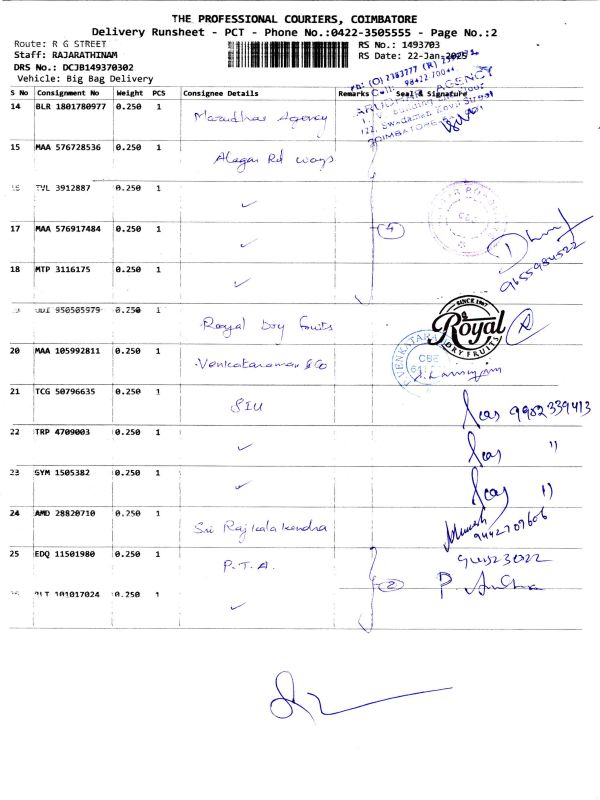 THE PROFESSIONAL COURIERS, COIMBATORE
Delivery Runsheet - PCT - Phone No.:0422-3505555 - Page No.:2
Route: R G STREET
RS No.: 1493703
Staff: RAJARATHINAM
RS Date: 22-Jan-2025
DRS No.: DCJB149370302
Vehicle: Big Bag Delivery
S No Consignment No Weight PCS Consignee Details Remarks Seal & Signature
14 BLR 1801780977 0.250 1 Marudhar Agency
ARUDHAR AGENCY
15 MAA 576728536 0.250 1 Alagar Rd ways
TVL 3912887 0.250 1 ✓
17 MAA 576917484 0.250 1 ✓ 4
18 MTP 3116175 0.250 1 ✓
9655984522
950505979 0.250 1 Royal Dry fruits
SINCE 1967
Royal
DRY FRUITS
20 MAA 105992811 0.250 1 Venkataraman & Co
21 TCG 50796635 0.250 1 SIU
22 TRP 4709003 0.250 1 ✓ "
23 GYM 1505382 0.250 1 ✓ "
24 AMD 28820710 0.250 1 Sri Raj kala kendra
9442709606
25 EDQ 11501980 0.250 1 P.T.A. 2
101017024 0.250 1 ✓